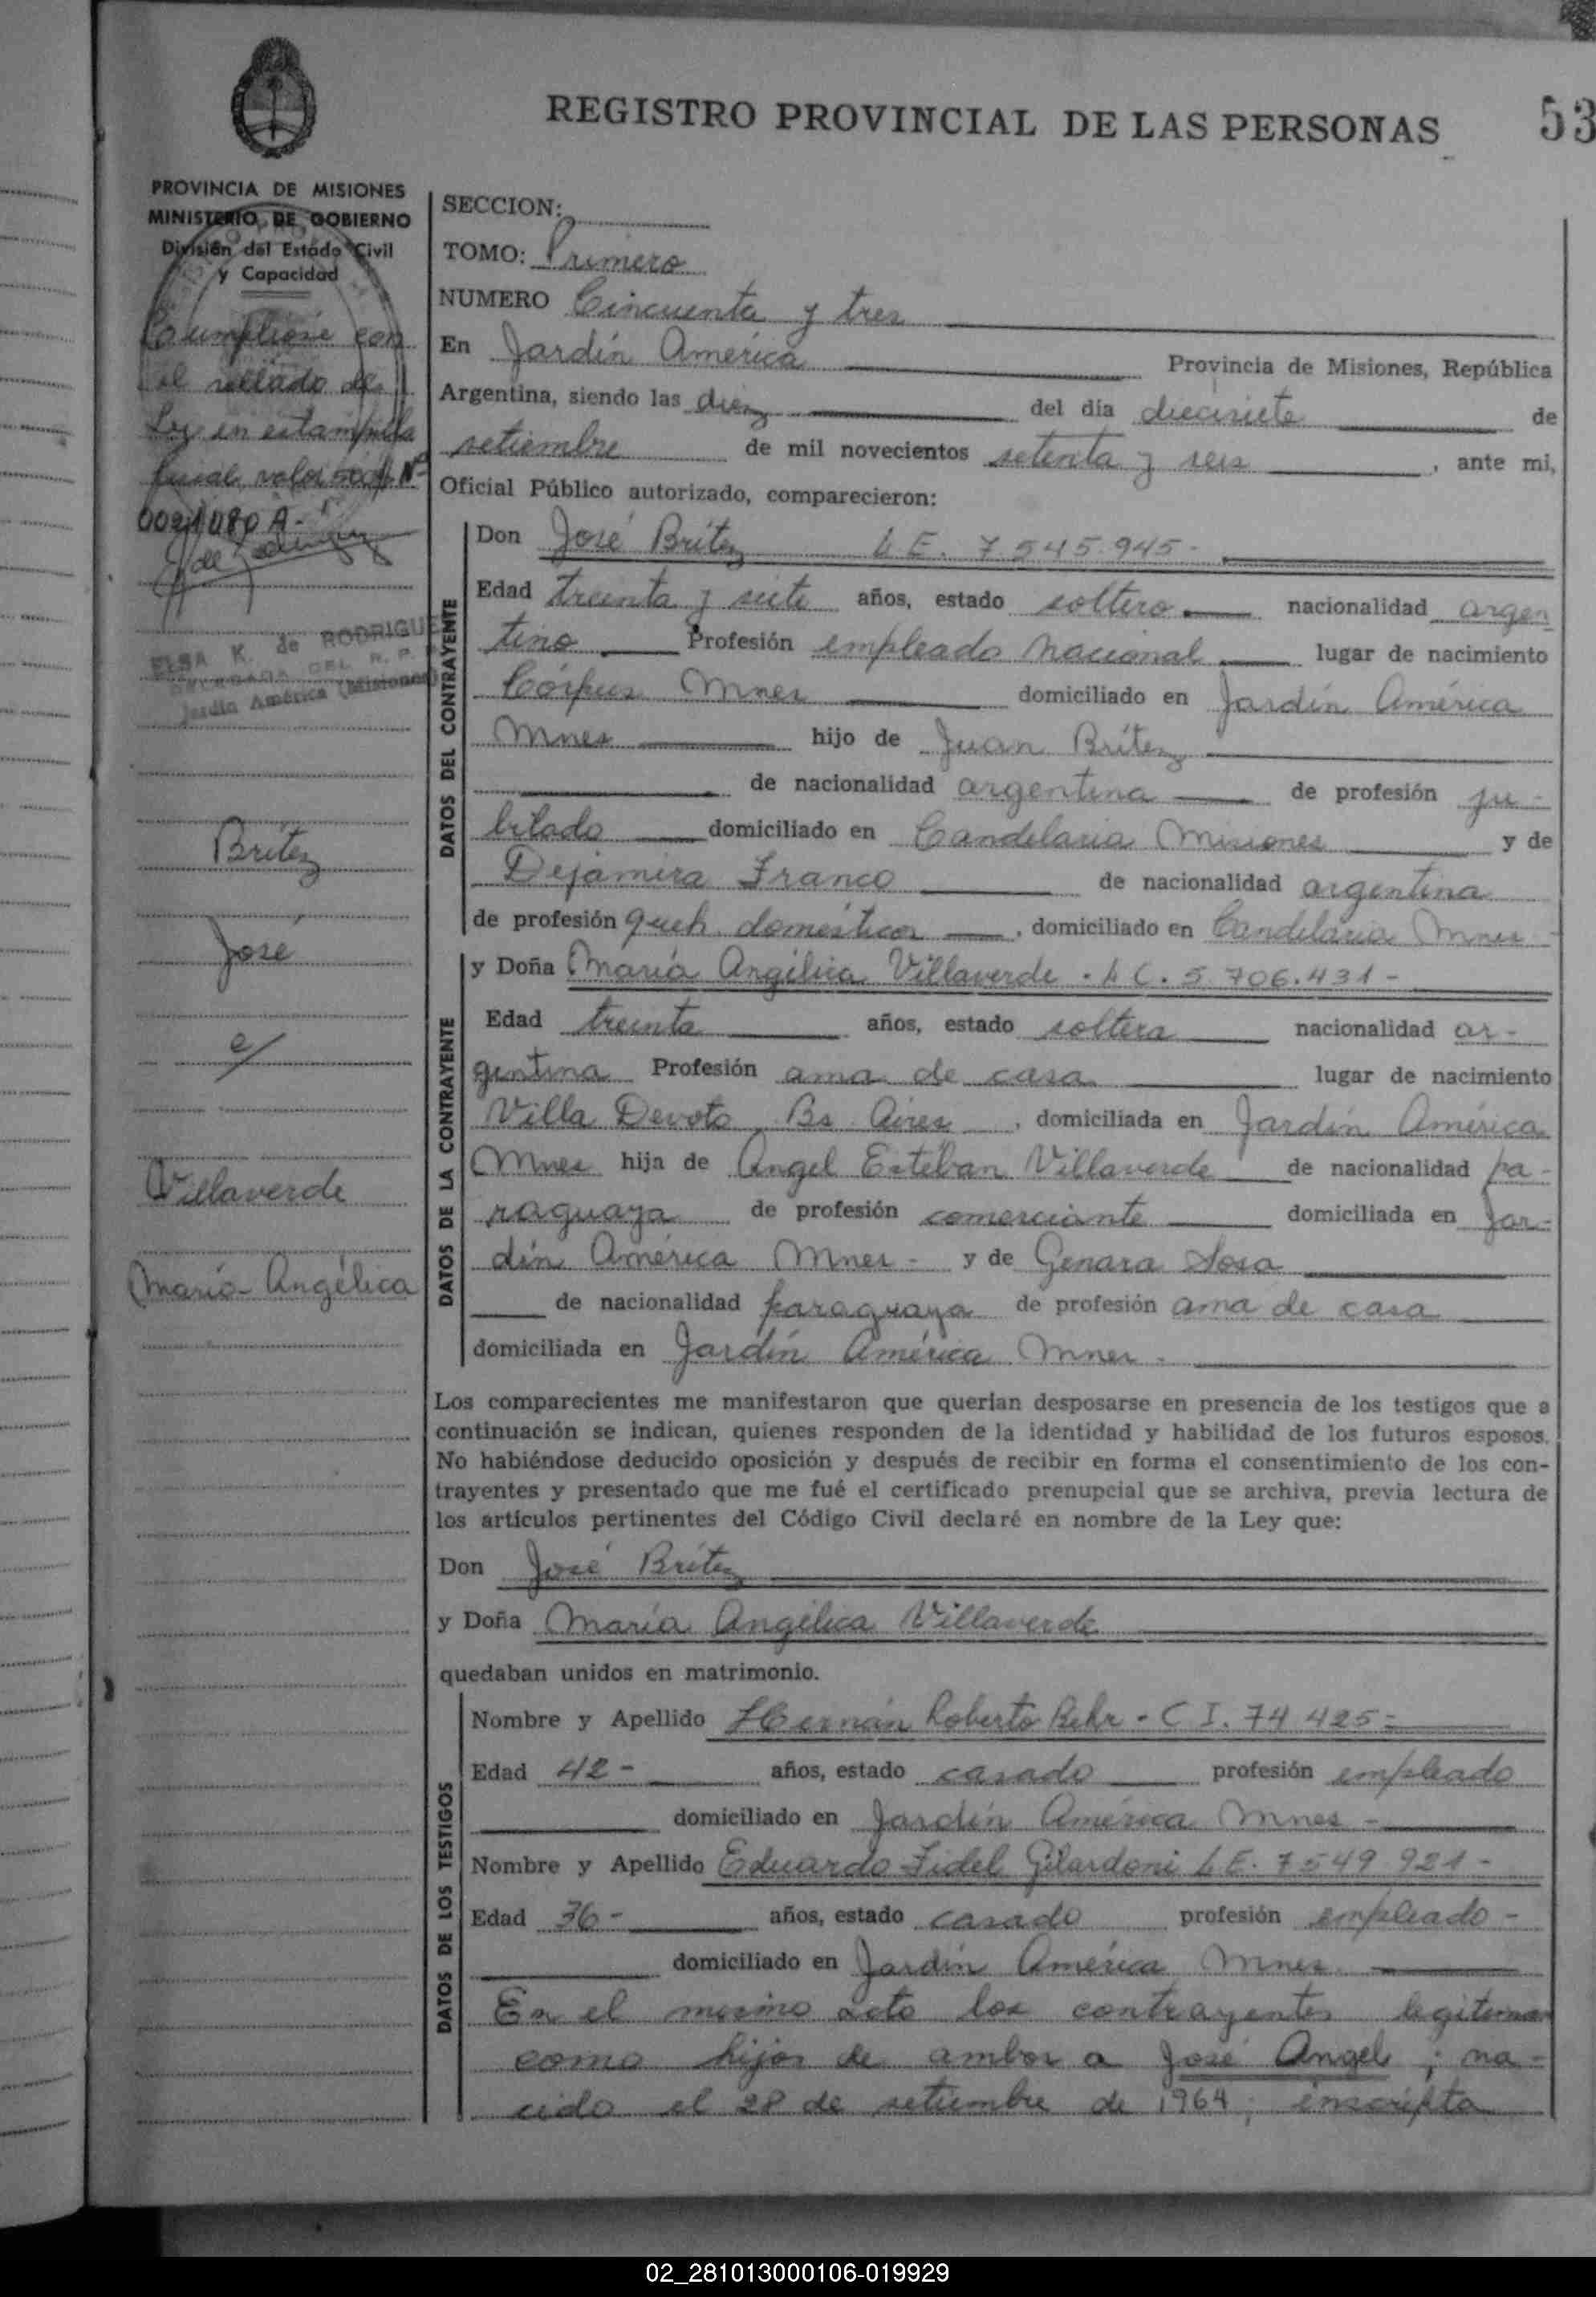 REGISTRO PROVINCIAL DE LAS PERSONAS
53
PROVINCIA DE MISIONES
MINISTERIO DE GOBIERNO
División del Estado Civil
y Capacidad
Cumplióse con
el sellado de
Ley en estampilla
fiscal valor 50 Nº
0021080 A-
ELSA K. de RODRIGUE
DELEGADA DEL R. P.
Jardín América (Misiones)
Britez
José
c/
Villaverde
María Angélica
SECCION:
TOMO: Primero
NUMERO Cincuenta y tres
En Jardín América Provincia de Misiones, República
Argentina, siendo las diez del día diecisiete de
setiembre de mil novecientos setenta y seis, ante mi,
Oficial Público autorizado, comparecieron:
DATOS DEL CONTRAYENTE
Don José Britez L E. 7 545.945-
Edad treinta y siete años, estado soltero nacionalidad argen
tino Profesión empleado nacional lugar de nacimiento
Córpus Mnes domiciliado en Jardín América
Mnes hijo de Juan Britez
de nacionalidad argentina de profesión ju-
bilado domiciliado en Candelaria Misiones y de
Dejamira Franco de nacionalidad argentina
de profesión queh. domésticos, domiciliado en Candelaria Mnes
DATOS DE LA CONTRAYENTE
y Doña María Angélica Villaverde - L C. 5 706.431-
Edad treinta años, estado soltera nacionalidad ar-
gentina Profesión ama de casa lugar de nacimiento
Villa Devoto, Bs. Aires, domiciliada en Jardín América
Mnes hija de Angel Esteban Villaverde de nacionalidad pa-
raguaya de profesión comerciante domiciliada en Jar-
dín América Mnes - y de Genara Sosa
de nacionalidad paraguaya de profesión ama de casa
domiciliada en Jardín América Mnes -
Los comparecientes me manifestaron que querían desposarse en presencia de los testigos que a
continuación se indican, quienes responden de la identidad y habilidad de los futuros esposos.
No habiéndose deducido oposición y después de recibir en forma el consentimiento de los con-
trayentes y presentado que me fué el certificado prenupcial que se archiva, previa lectura de
los artículos pertinentes del Código Civil declaré en nombre de la Ley que:
Don José Britez
y Doña María Angélica Villaverde
quedaban unidos en matrimonio.
DATOS DE LOS TESTIGOS
Nombre y Apellido Hernán Roberto Behr - C I. 74 425-
Edad 42- años, estado casado profesión empleado
domiciliado en Jardín América Mnes -
Nombre y Apellido Eduardo Fidel Gilardoni L E. 7 549 921-
Edad 36- años, estado casado profesión empleado-
domiciliado en Jardín América Mnes.
En el mismo acto los contrayentes legitiman
como hijos de ambos a José Angel; na-
cido el 28 de setiembre de 1964, inscripto
02_281013000106-019929